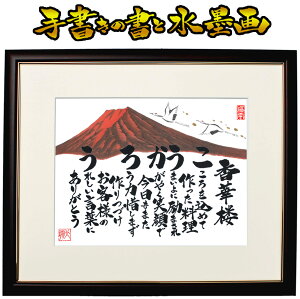 手書きの書と水墨画
香華楼
こころを込めて
作った料理
うまいよに励まされ
がやく笑顔で
今日もまた
ろう力惜します
作りつづけ
お客様の
うれしい言葉に
ありがとう